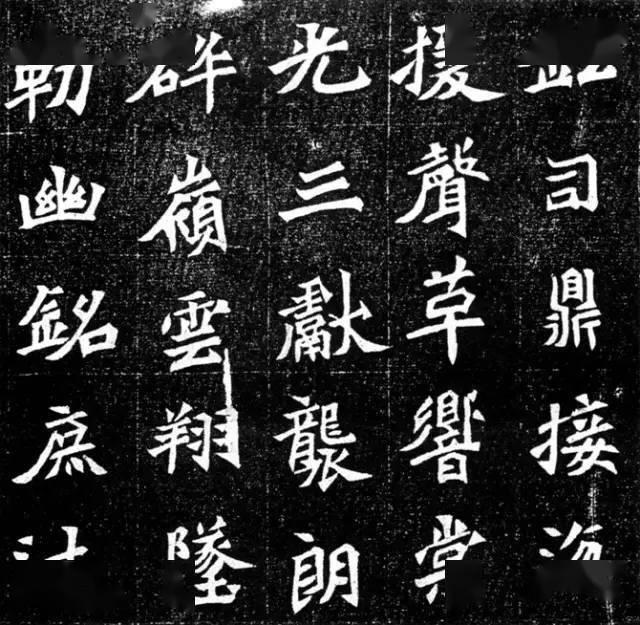 司鼎接
援聲草響
光三獻襲朗
碎嶺雲翔墜
勒幽銘庶